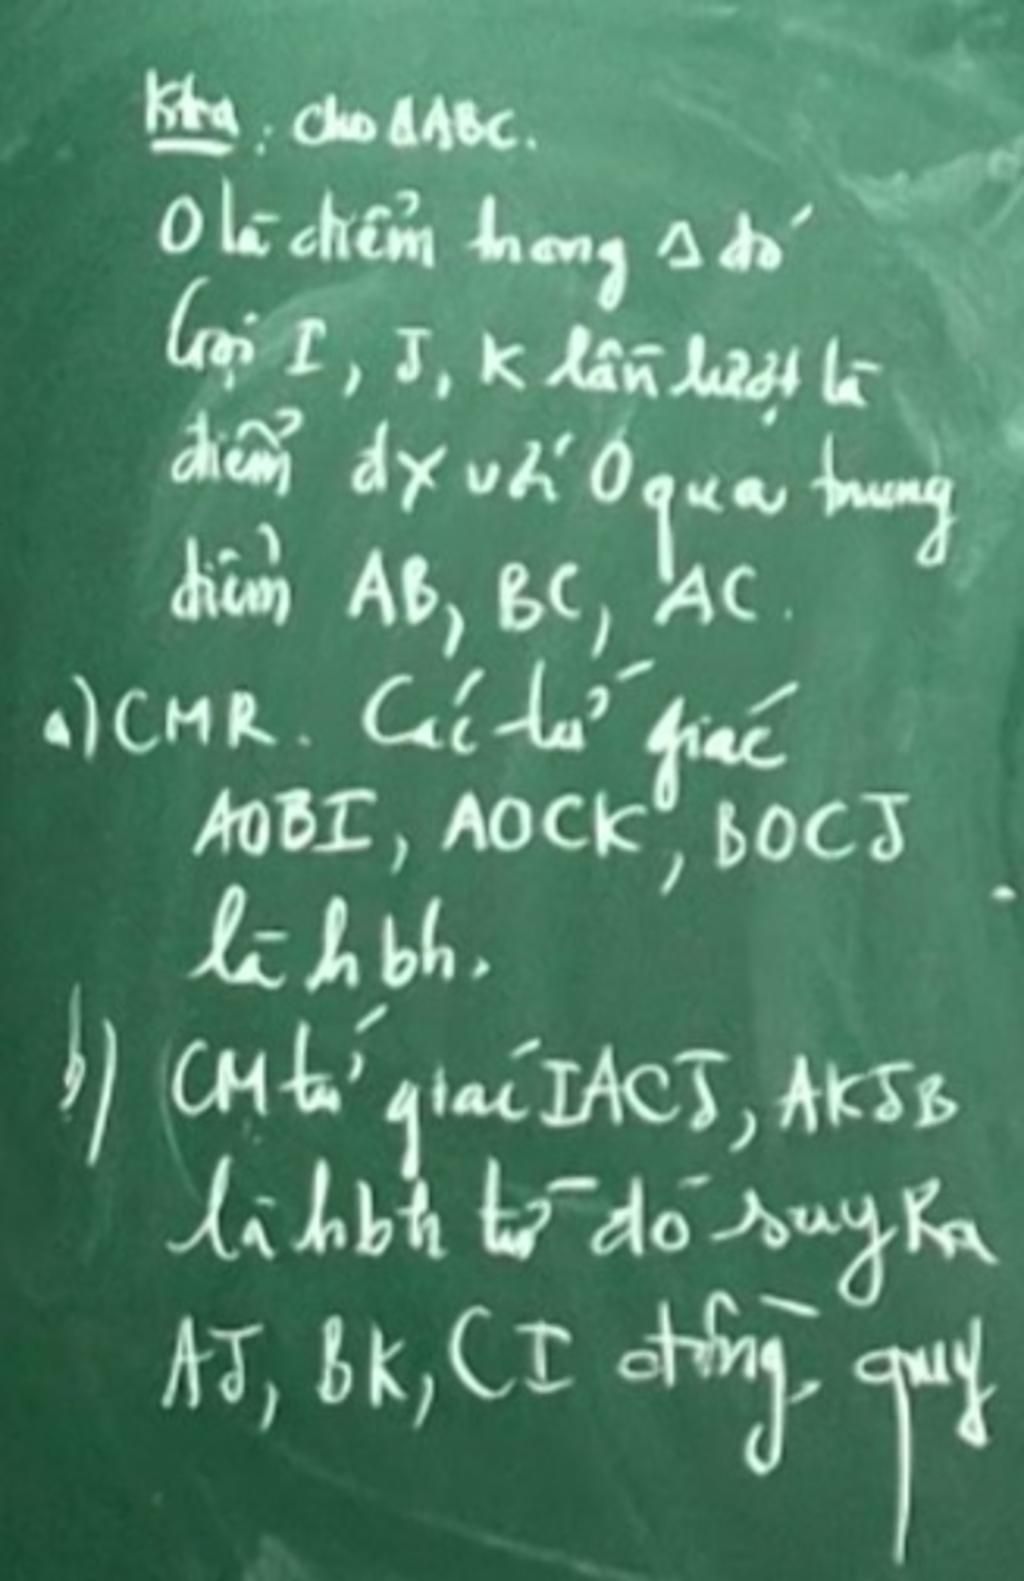 Ktra: Cho ΔABC.
O là điểm trong Δ đó
Gọi I, J, K lần lượt là
điểm đx với O qua trung
điểm AB, BC, AC.
a) CMR. Các tứ giác
AOBI, AOCK, BOCJ
là hbh.
b) CM tứ giác IACJ, AKJB
là hbh từ đó suy Ra
AJ, BK, CI đồng quy